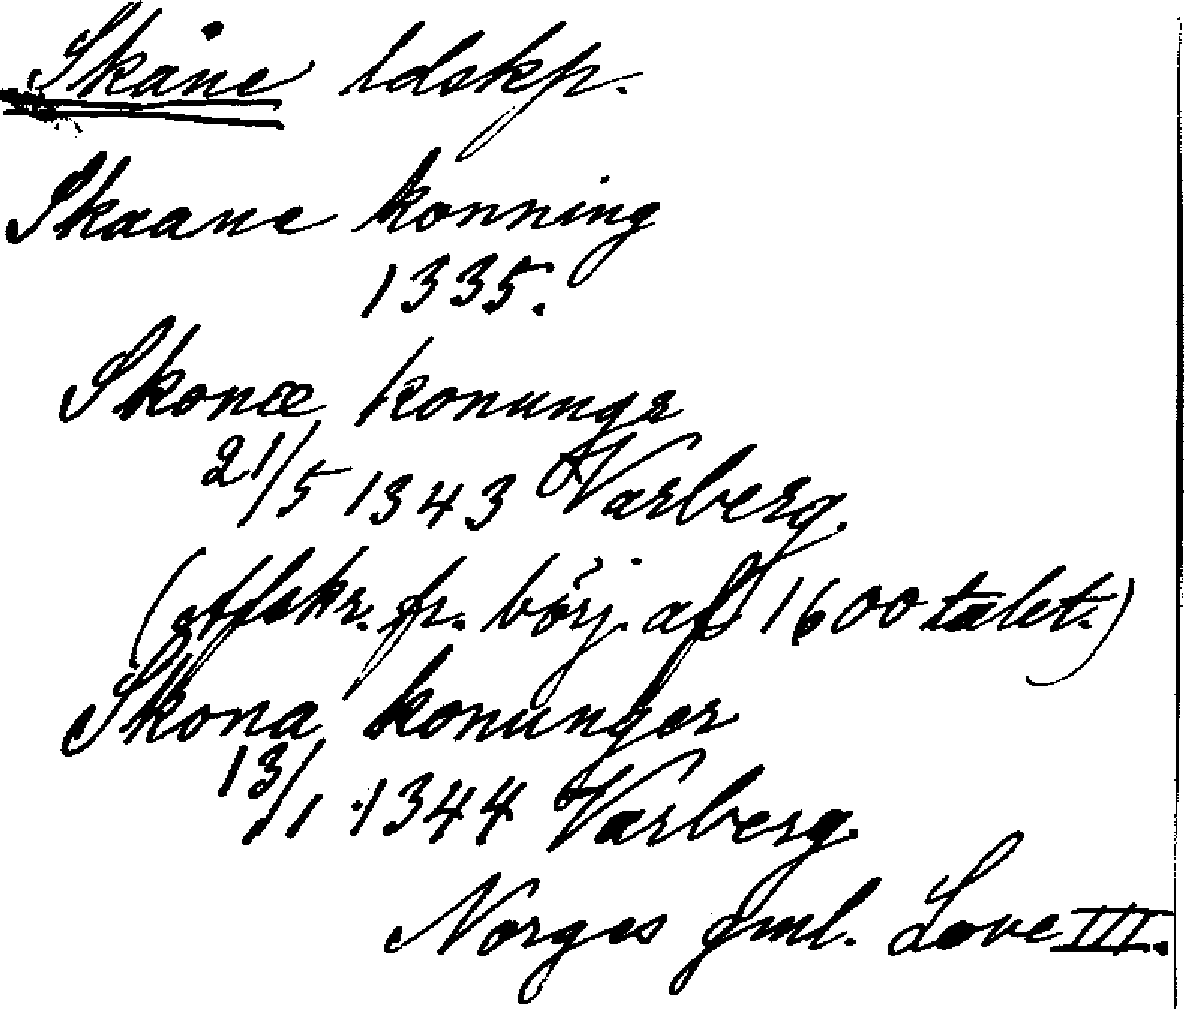 Skåne ldskp.
Skaane konning
1335.
Skonæ konungr
21/5 1343 Varberg.
(Afskr. fr. börj. af 1600 talet.)
Skona konunger
13/1 1344 Varberg.
Norges gml. Love III.